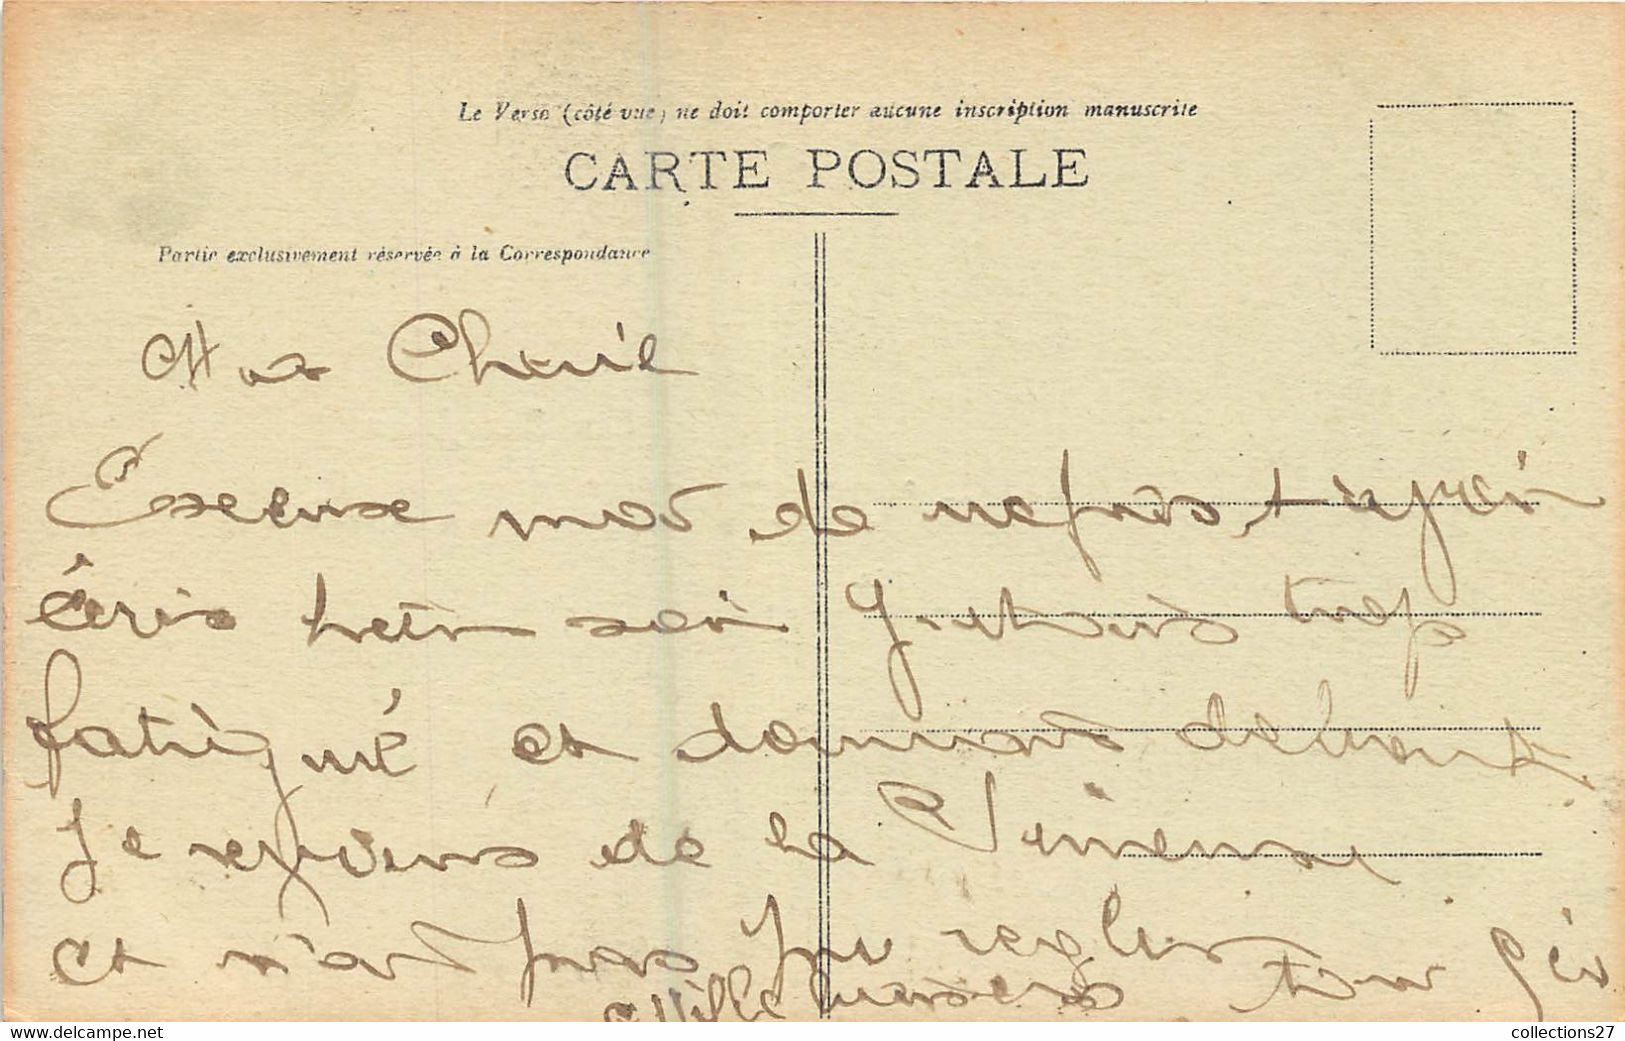 Le Verso (côté vue) ne doit comporter aucune inscription manuscrite
CARTE POSTALE
Partie exclusivement réservée à la Correspondance
Ma Cherie
Excuse moi de
écris hein soir J'etais trop
fatigué et dormais debout
Je reviens de la
et n'ai pas pu regler ton
Mille baisers
collections27